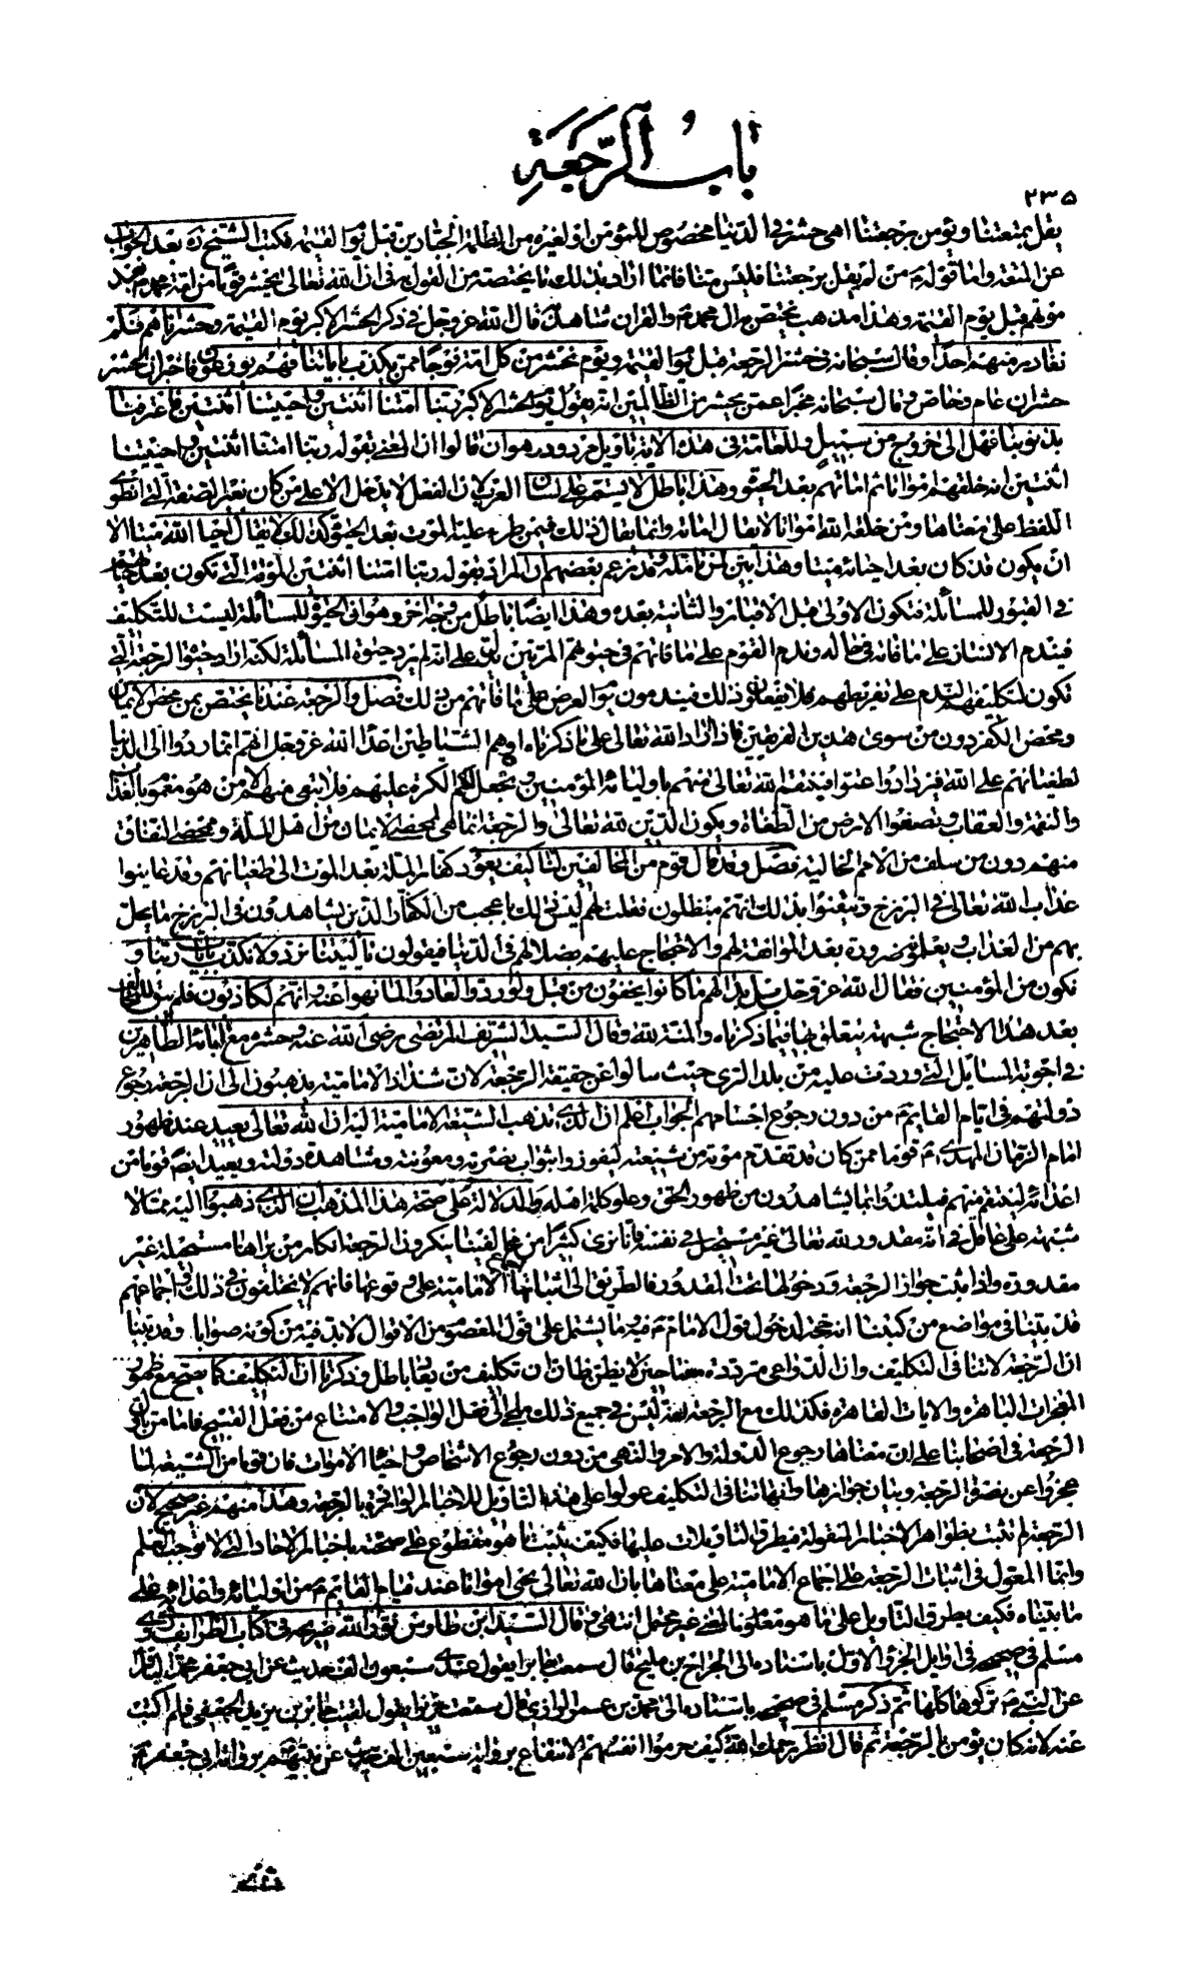 باب الرجعة
۲۳۵
يقل بمتعتنا ويؤمن برجعتنا اهي حشر في الدنيا مخصوص للمؤمن او لغيره من الظلمة الجبارين قبل يوم القيمة فكتب الشيخ ره بعد الجواب
عن المتعة واما قوله ع من لم يقل برجعتنا فليس منا فانما اراد بذلك ما يختصه من القول به في ان الله تعالى يحشر قوما من امة محمد ص بعد
موتهم قبل يوم القيمة وهذا مذهب يختص به ال محمد ص والقران شاهد به قال الله عز وجل في ذكر الحشر الاكبر يوم القيمة وحشرناهم فلم
نغادر منهم احدا وقال سبحانه في حشر الرجعة قبل يوم القيمة ويوم نحشر من كل امة فوجا ممن يكذب باياتنا فهم يوزعون فاخبر ان الحشر
حشران عام وخاص وقال سبحانه مخبرا عمن يحشر من الظالمين انه يقول يوم الحشر الاكبر ربنا امتنا اثنتين واحييتنا اثنتين فاعترفنا
بذنوبنا فهل الى خروج من سبيل وللعامة في هذه الاية تاويل مردود وهو ان قالوا ان المعنى بقوله ربنا امتنا اثنتين واحييتنا
اثنتين انه خلقهم امواتا ثم اماتهم بعد الحيوة وهذا باطل لا يستمر على لسان العرب لان الفعل لا يدخل الا على من كان بغير الصفة التي انطوى
اللفظ على معناها ومن خلقه الله امواتا لا يقال اماته وانما يقال ذلك فيمن طرء عليه الموت بعد الحيوة كذلك لا يقال احيا الله ميتا الا
ان يكون قد كان بعد احيائه ميتا وهذا بين لمن تامله وقد زعم بعضهم ان المراد بقوله ربنا امتنا اثنتين الموتة التي تكون بعد حياتهم
في القبور للمسائلة فتكون الاولى قبل الاقبار والثانية بعده وهذا ايضا باطل من وجه اخر وهو ان الحيوة للمسائلة ليست للتكليف
فيندم الانسان على ما فاته في حاله وندم القوم على ما فاتهم في حيوتهم المرتين يدل على انه لم يرد حيوة المسائلة لكنه اراد حيوة الرجعة التي
تكون لتكليفهم الندم على تفريطهم فلا يفعلون ذلك فيندمون يوم العرض على ما فاتهم من ذلك فصل والرجعة عندنا يختص بمن محض الايمان
ومحض الكفر دون من سوى هذين الفريقين فاذا اراد الله تعالى على ما ذكرناه اوهم الشياطين اعداء الله عز وجل انهم انما ردوا الى الدنيا
لطغيانهم على الله فيزدادوا عتوا فينتقم الله تعالى منهم باوليائه المؤمنين ويجعل لهم الكرة عليهم فلا يبقى منهم الا من هو مغموم بالعذاب
والنقمة والعقاب وتصفو الارض من الطغاة ويكون الدين لله تعالى والرجعة انما هي لممحضي الايمان من اهل الملة وممحضي النفاق
منهم دون من سلف من الامم الخالية فصل وقد قال قوم من المخالفين لنا كيف يعود كفار الملة بعد الموت الى طغيانهم وقد عاينوا
عذاب الله تعالى في البرزخ وتيقنوا بذلك انهم مبطلون فقلت لهم ليس ذلك باعجب من الكفار الذين يشاهدون في البرزخ ما يحل
بهم من العذاب ويعلمونه ضرورة بعد الموافقة لهم والاحتجاج عليهم بضلالهم في الدنيا فيقولون يا ليتنا نرد ولا نكذب بايات ربنا و
نكون من المؤمنين فقال الله عز وجل بل بدا لهم ما كانوا يخفون من قبل ولو ردوا لعادوا لما نهوا عنه وانهم لكاذبون فلم يبق للمخالف
بعد هذا الاحتجاج شبهة يتعلق بها فيما ذكرناه والمنة لله وقال السيد الشريف المرتضى رضي الله عنه وحشره مع ابائه الطاهرين
في اجوبة المسائل التي وردت عليه من بلد الري حيث سالوا عن حقيقة الرجعة لان شذاذ الامامية يذهبون الى ان الرجعة رجوع
دولتهم في ايام القايم ع من دون رجوع اجسامهم الجواب اعلم ان الذي تذهب الشيعة الامامية اليه ان الله تعالى يعيد عند ظهور
امام الزمان المهدي ع قوما ممن كان قد تقدم موته من شيعته ليفوزوا بثواب نصرته ومعونته ومشاهدة دولته ويعيد ايضا قوما من
اعدائه لينتقم منهم فيلتذوا بما يشاهدون من ظهور الحق وعلو كلمة اهله والدلالة على صحة هذا المذهب ان الذي ذهبوا اليه مما لا
شبهة على عاقل في انه مقدور لله تعالى غير مستحيل في نفسه فانا نرى كثيرا من مخالفينا ينكرون الرجعة انكار من يراها مستحيلة غير
مقدورة واذا ثبت جواز الرجعة ودخولها تحت المقدور فالطريق الى اثباتها اجماع الامامية على وقوعها فانهم لا يختلفون في ذلك واجماعهم
قد بينا في مواضع من كتبنا انه حجة لدخول قول الامام ع فيه وما يشتمل على قول المعصوم من الاقوال لا بد فيه من كونه صوابا وقد بينا
ان الرجعة لا تنافي التكليف وان الدواعي مترددة معها حتى لا يظن ظان ان تكليف من يعاد باطل وذكرنا ان التكليف كما يصح مع ظهور
المعجزات الباهرة والايات القاهرة فكذلك مع الرجعة لانه ليس في جميع ذلك ملجئ الى فعل الواجب والامتناع من فعل القبيح فاما من تاول
الرجعة في اصحابنا على ان معناها رجوع الدولة والامر والنهي من دون رجوع الاشخاص واحياء الاموات فان قوما من الشيعة لما
عجزوا عن نصرة الرجعة وبيان جوازها وانها تنافي التكليف عولوا على هذا التاويل للاخبار الواردة بالرجعة وهذا منهم غير صحيح لان
الرجعة لم تثبت بظواهر الاخبار المنقولة فيطرق التاويلات عليها فكيف يثبت ما هو مقطوع على صحته باخبار الاحاد التي لا توجب العلم
وانما المعول في اثبات الرجعة على اجماع الامامية على معناها بان الله تعالى يحيي امواتا عند قيام القايم ع من اوليائه واعدائه على
ما بيناه فكيف يطرق التاويل على ما هو معلوم فالمعنى غير محتمل انتهى وقال السيد ابن طاوس نور الله ضريحه في كتاب الطرائف روى
مسلم في صحيحه في اوايل الجزؤ الاول باسناده الى الجراح بن مليح قال سمعت جابرا يقول عندي سبعون الف حديث عن ابي جعفر محمد الباقر
عن النبي ص تركوها كلها ثم ذكر مسلم في صحيحه باسناده الى محمد بن عمر الرازي قال سمعت حريزا يقول لقيت جابر بن يزيد الجعفي فلم اكتب
عنه لانه كان يؤمن بالرجعة ثم قال انظر رحمك الله كيف حرموا انفسهم الانتفاع برواية سبعين الف حديث عن نبيهم ص برواية ابي جعفر ع